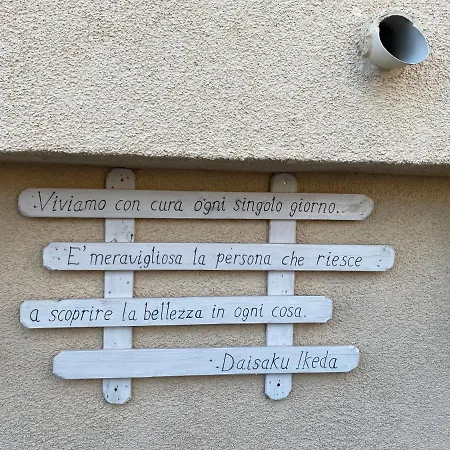 .Viviamo con cura ogni singolo giorno.
E' meravigliosa la persona che riesce
a scoprire la bellezza in ogni cosa.
.Daisaku Ikeda